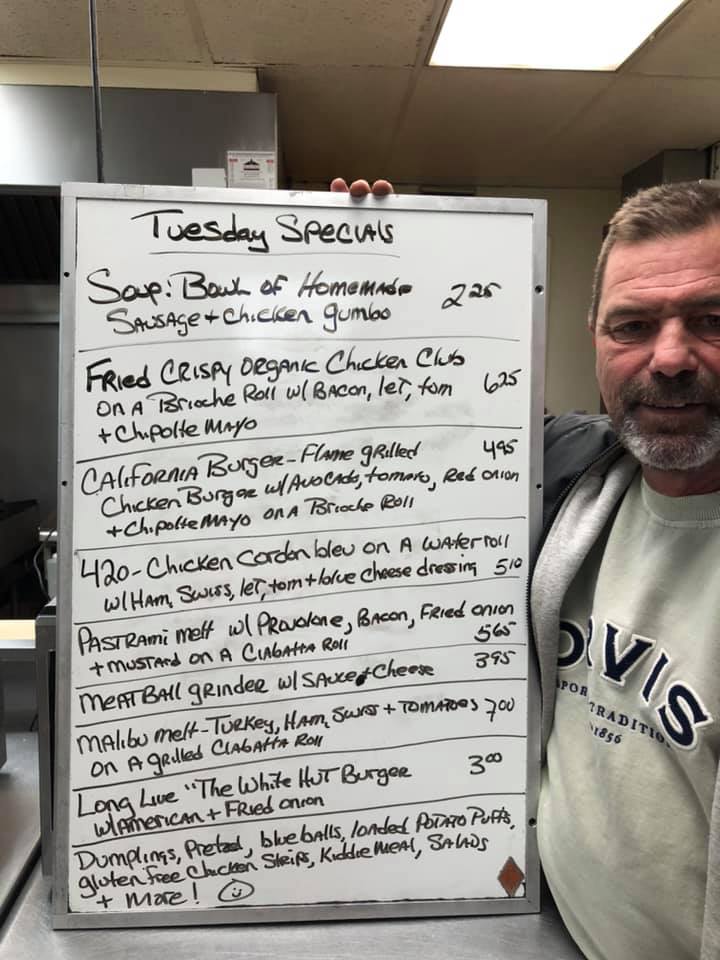 Tuesday Specials
Soup: Bowl of Homemade 2 25
Sausage + Chicken gumbo
Fried Crispy Organic Chicken Club
on a Brioche Roll w/ Bacon, let, tom 6 25
+ Chipolte Mayo
California Burger - Flame grilled 4 95
Chicken Burger w/ Avocado, tomato, Red onion
+ Chipolte Mayo on a Brioche Roll
420 - Chicken Cordon bleu on a Water roll
w/ Ham, Swiss, let, tom + blue cheese dressing 5 10
Pastrami melt w/ Provolone, Bacon, Fried onion
+ mustard on a Ciabatta Roll 5 65
Meat Ball grinder w/ Sauce + Cheese 3 95
Malibu melt - Turkey, Ham, Swiss + Tomatoes 7 00
on a grilled Ciabatta Roll
Long Live "The White Hut Burger 3 00
w/ American + Fried onion
Dumplings, Pretzel, blue balls, loaded Potato Puffs,
gluten free Chicken Strips, Kiddie Meal, Salads
+ more!
ORVIS
SPOR TRADITIO
1856